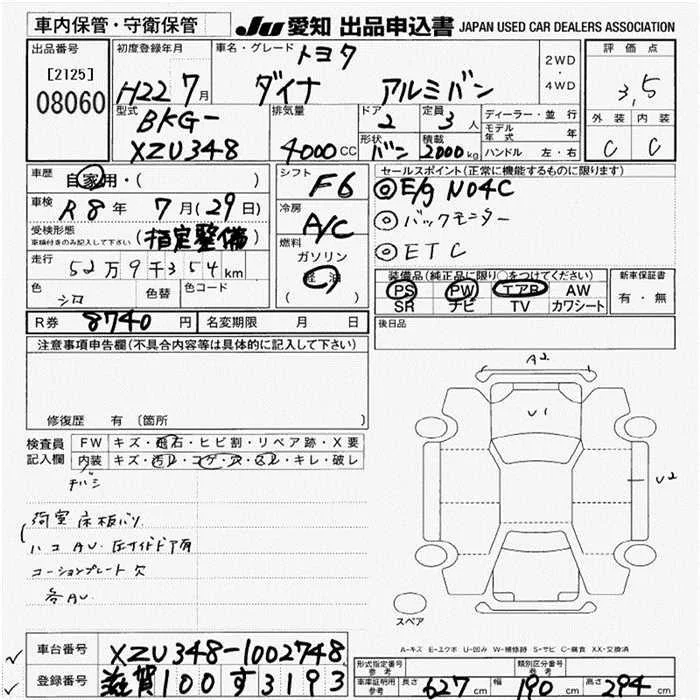 車内保管・守衛保管
JU 愛知 出品申込書 JAPAN USED CAR DEALERS ASSOCIATION
出品番号
[2125]
08060
初度登録年月
H22 7月
車名・グレード トヨタ
ダイナ アルミバン
2WD
・
4WD
評価点
3,5
外装 内装
C C
型式
BKG-
XZU348
排気量
4000CC
ドア
2
定員
3人
形状
バン
積載
2000kg
ディーラー・並行
モデル年式 年
ハンドル 左・右
車歴
自家用・( )
車検
R8年 7月(29日)
受検形態
車検付きのみ記入して下さい
(指定整備)
走行
52万9千354km
色
シロ
色替
色コード
シフト
F6
冷房
A/C
燃料
ガソリン
軽油
( )
セールスポイント(正常に機能するものに限ります)
◎E/g N04C
◎バックモニター
◎ETC
装備品(純正品に限り○をつけてください)
PS PW エアB AW
SR ナビ TV カワシート
新車保証書
有・無
R券 8740円
名変期限 月 日
後日品
注意事項申告欄(不具合内容等は具体的に記入して下さい)
修復歴 有〔箇所 〕
検査員
記入欄
FW キズ・飛石・ヒビ割・リペア跡・X要
内装 キズ・汚レ・コゲ・穴・スレ・キレ・破レ
荷室 床板バリ
ハコ AU
コーションプレート欠
各AU
A2
U1
U2
スペア
A-キズ E-エクボ U-凹み W-補修跡 S-サビ C-腐食 XX-交換済
車台番号 XZU348-1002748
登録番号 滋賀100す3193
形式指定番号
参考
類別区分番号
参考
車庫証明用
参考
長さ 627cm 幅 190cm 高さ 294cm